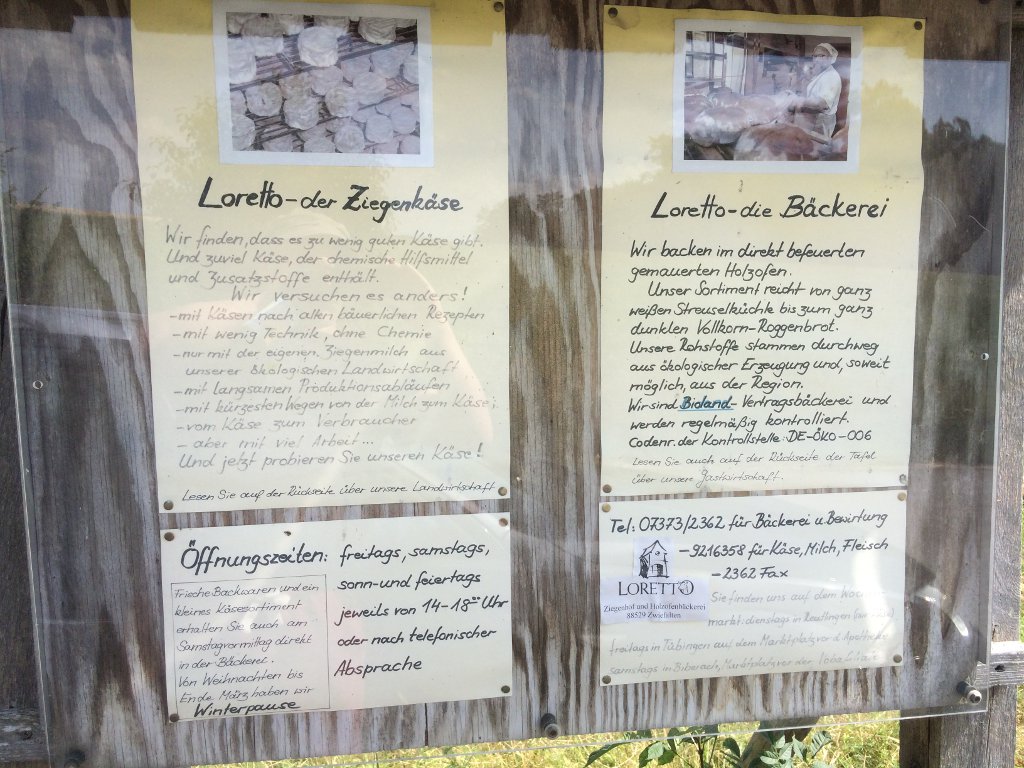 Loretto - der Ziegenkäse
Wir finden, dass es zu wenig guten Käse gibt.
Und zuviel Käse, der chemische Hilfsmittel
und Zusatzstoffe enthält.
Wir versuchen es anders!
- mit Käsen nach alten bäuerlichen Rezepten
- mit wenig Technik, ohne Chemie
- nur mit der eigenen Ziegenmilch aus
unserer ökologischen Landwirtschaft
- mit langsamen Produktionsabläufen
- mit kürzesten Wegen von der Milch zum Käse;
- vom Käse zum Verbraucher
- aber mit viel Arbeit...
Und jetzt probieren Sie unseren Käse!
Lesen Sie auf der Rückseite über unsere Landwirtschaft
Öffnungszeiten: freitags, samstags,
sonn- und feiertags
jeweils von 14-18⁰⁰ Uhr
oder nach telefonischer
Absprache
Frische Backwaren und ein
kleines Käsesortiment
erhalten Sie auch am
Samstagvormittag direkt
in der Bäckerei.
Von Weihnachten bis
Ende März haben wir
Winterpause
Loretto - die Bäckerei
Wir backen im direkt befeuerten
gemauerten Holzofen.
Unser Sortiment reicht von ganz
weißen Streuselküchle bis zum ganz
dunklen Vollkorn-Roggenbrot.
Unsere Rohstoffe stammen durchweg
aus ökologischer Erzeugung und, soweit
möglich, aus der Region.
Wir sind Bioland-Vertragsbäckerei und
werden regelmäßig kontrolliert.
Codenr. der Kontrollstelle: DE-ÖKO-006
Lesen Sie auch auf der Rückseite der Tafel
über unsere Gastwirtschaft.
Tel: 07373/2362 für Bäckerei u. Bewirtung
- 9216358 für Käse, Milch, Fleisch
- 2362 Fax
LORETTO
Ziegenhof und Holzofenbäckerei
88529 Zwiefalten
Sie finden uns auf dem Wochen
markt: dienstags in Reutlingen
freitags in Tübingen auf dem Marktplatz vor d. Apotheke
samstags in Biberach, Marktplatz vor der